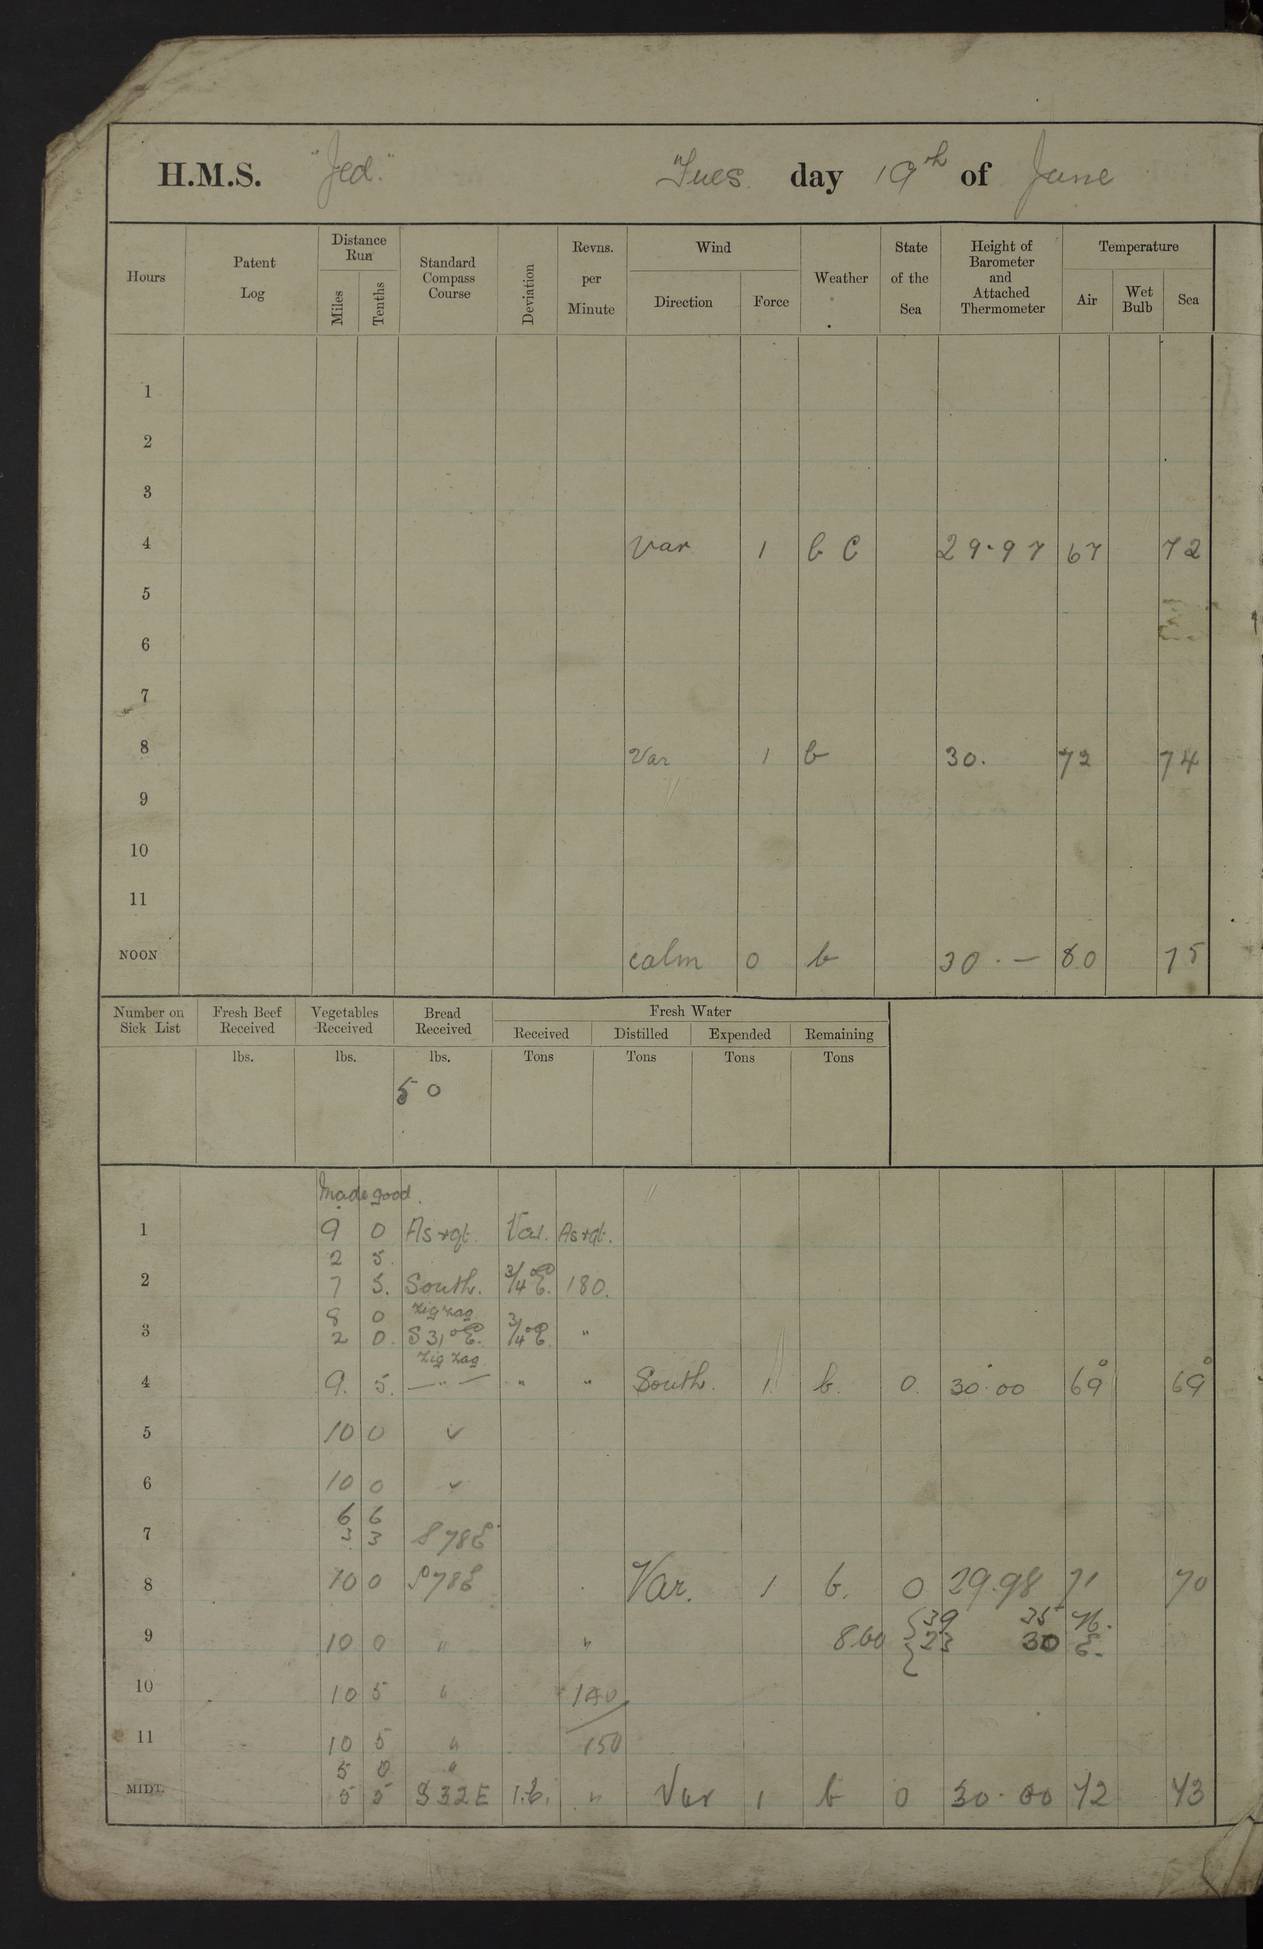 H.M.S. "Jed." Tues day 19th of June
Hours Patent Log Distance Run Miles Tenths Standard Compass Course Deviation Revns. per Minute Wind Direction Force Weather State of the Sea Height of Barometer and Attached Thermometer Temperature Air Wet Bulb Sea
1
2
3
4 Var 1 b c 29.97 67 72
5
6
7
8 Var 1 b 30. 72 74
9
10
11
NOON calm 0 b 30 . — 80 75
Number on Sick List Fresh Beef Received Vegetables Received Bread Received Fresh Water
Received Distilled Expended Remaining
lbs. lbs. lbs. Tons Tons Tons Tons
50
Made good.
1 9 0 As rqt. Var. As rqt.
2 5.
2 7 5. South. 3/4°E. 180.
8 0 zig zag
3 2 0. S31°E. 3/4°E "
zig zag
4 9. 5. — " — " " South. 1. b. 0. 30.00 69° 69°
5 10 0 ✓
6 10 0 ✓
6 6
7 3 3 S 78 E
8 10 0 S 78 E Var. 1 b. 0 29.98 71 70
39 35 N.
9 10 0 " " 8.00 { 23 30 E.
10 10 5 " 140
11 10 5 " 150
5 0 "
MIDT. 5 5 S 32 E 1.E. " Var 1 b 0 30.00 72 73